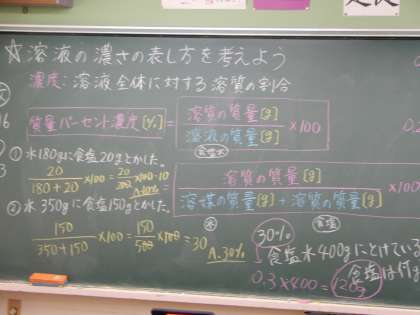 ☆溶液の濃さの表し方を考えよう
濃度：溶液全体に対する溶質の割合
質量パーセント濃度[%] = 溶質の質量[g] / 溶液の質量[g] ×100
食塩水
①水180gに食塩20gとかした。
20 / 180+20 ×100 = 20 / 200 ×100=10
A.10%
溶質の質量[g] / 溶媒の質量[g] + 溶質の質量[g] ×100
水 食塩
②水350gに食塩150gとかした。
150 / 350+150 ×100 = 150 / 500 ×100 = 30
A.30%
30%
食塩水400gにとけている
食塩は何g
0.3×400=120g